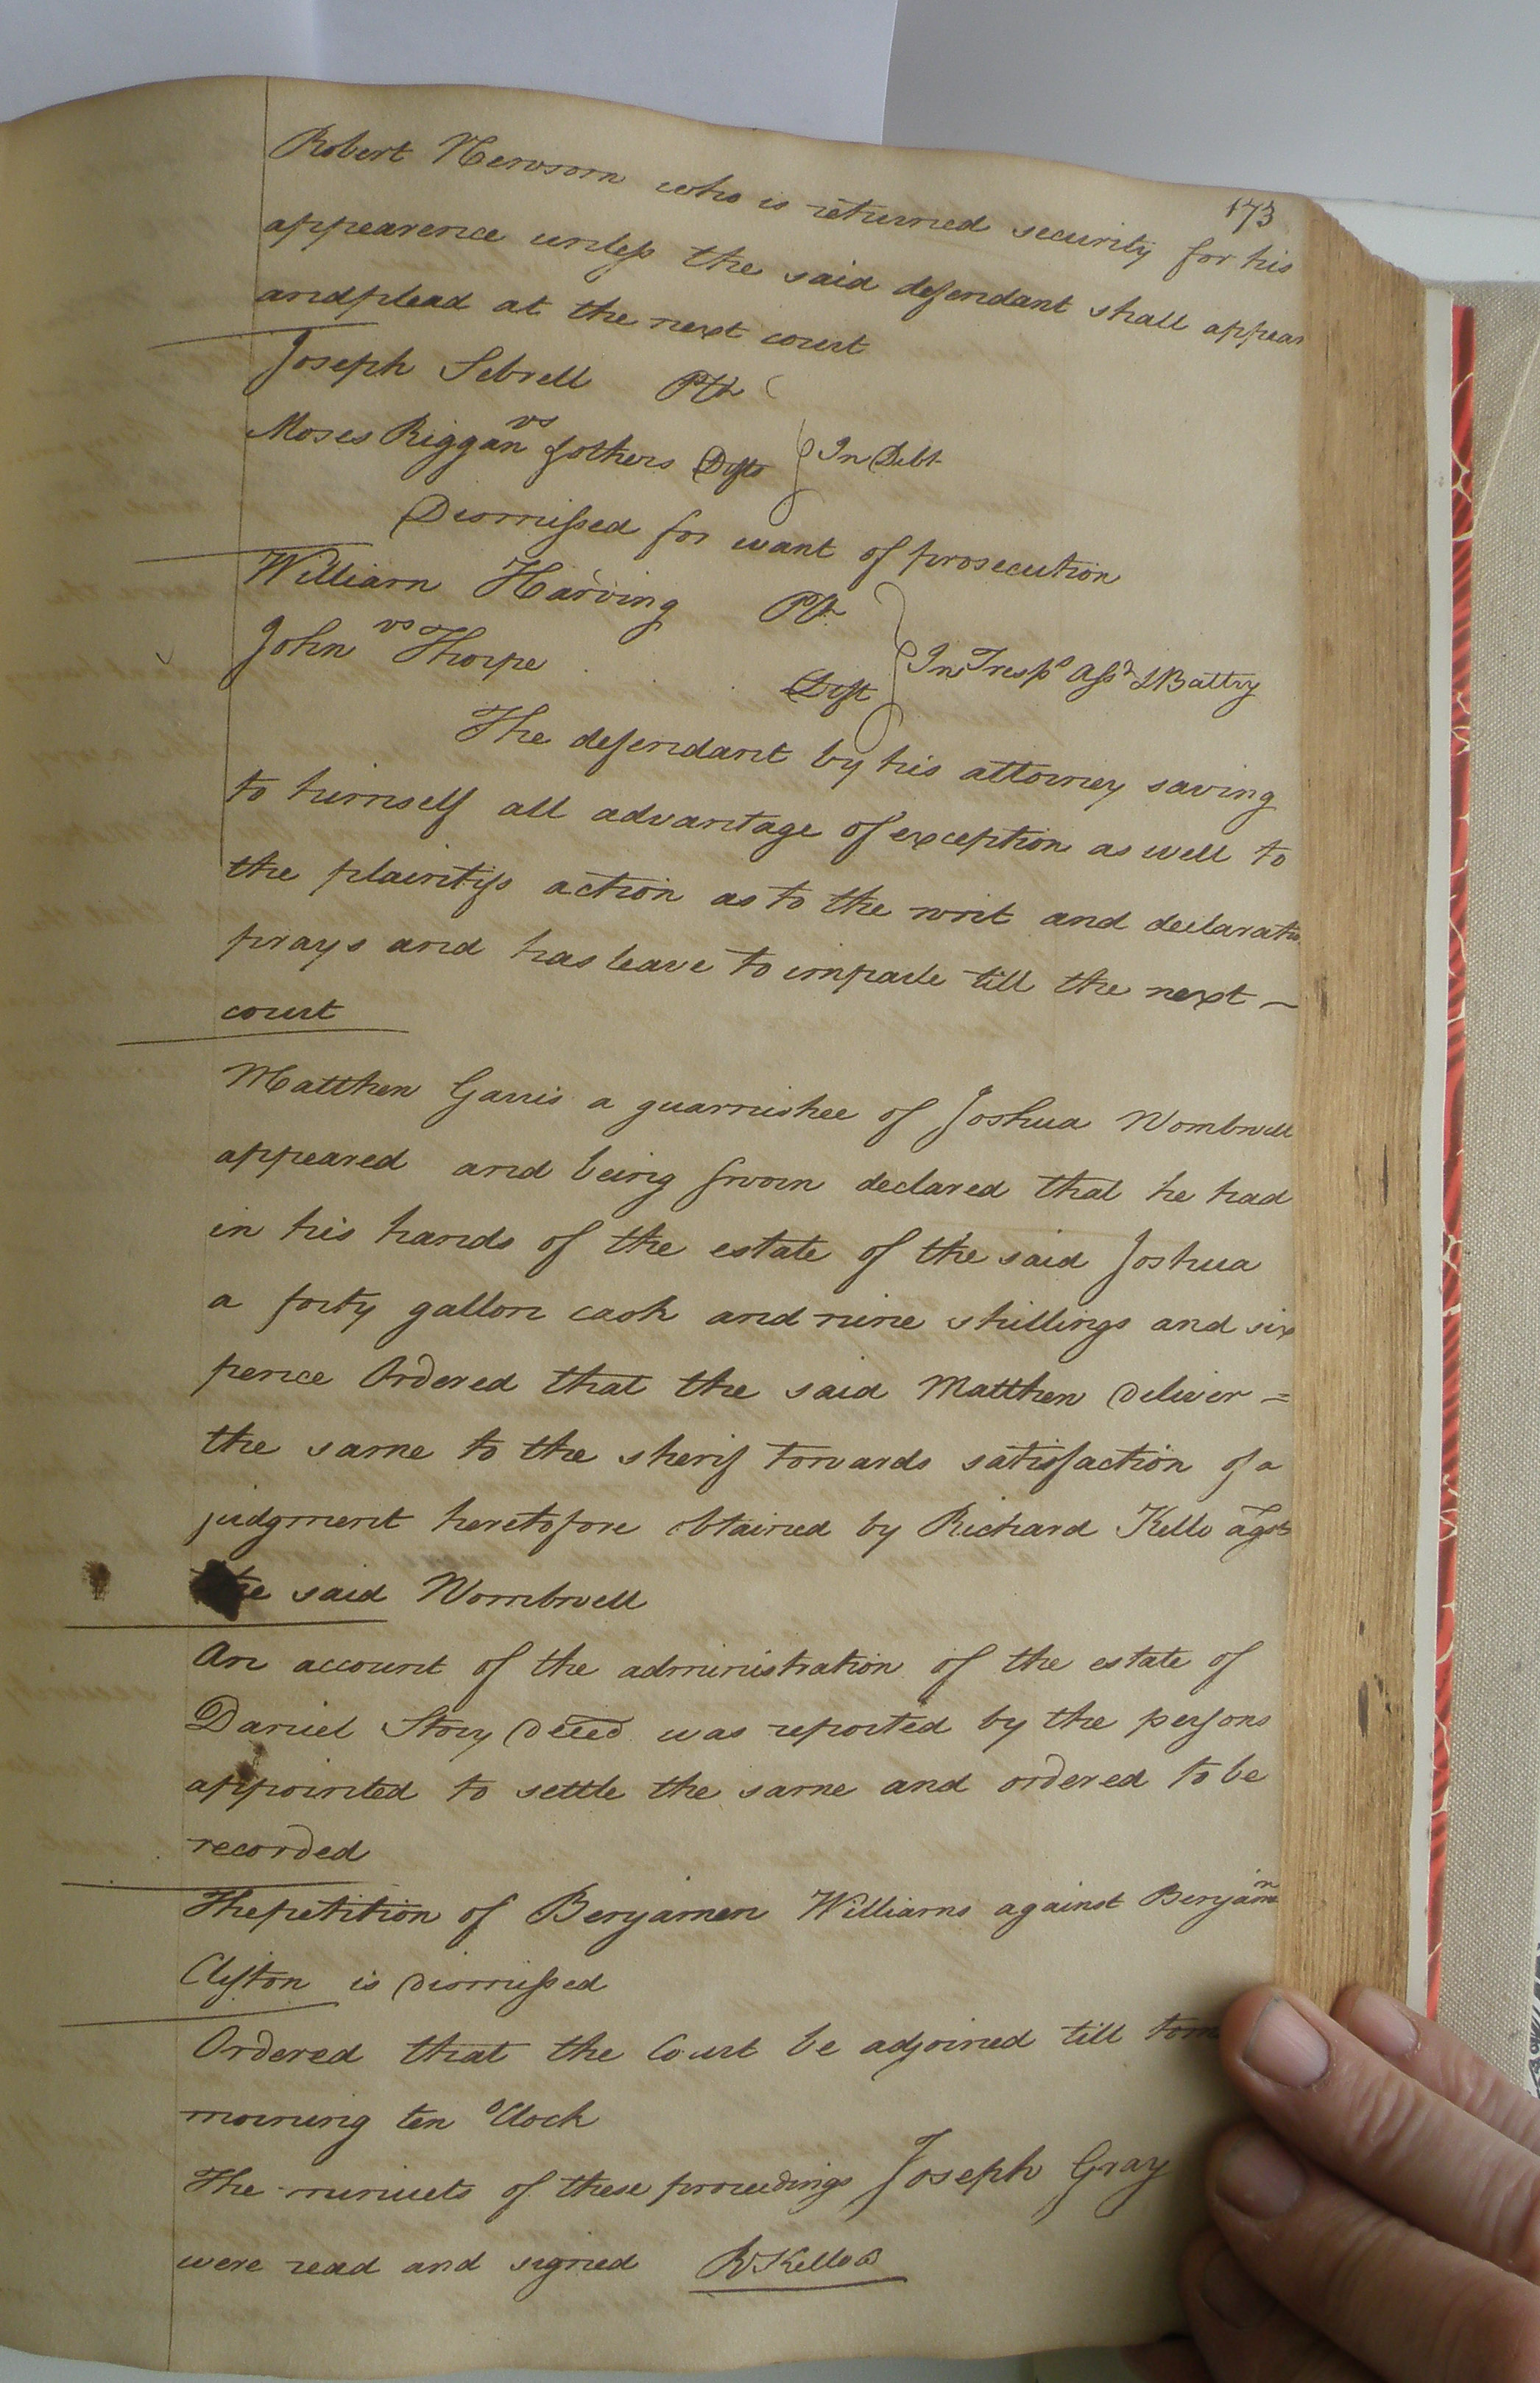 173
Robert Newsom who is returned security for his
appearence unless the said defendant shall appear
and plead at the next court
Joseph Sebrell Plt
vs
Moses Riggan & others Defts } In Debt
Dismissed for want of prosecution
William Harving Plt
vs
John Thorpe Deft } In Tresps Asst & Battry
The defendant by his attorney saving
to himself all advantage of exception as well to
the plaintifs action as to the writ and declaratio
prays and has leave to imparle till the next
court
Matthew Garris a guarnishee of Joshua Wombwell
appeared and being sworn declared that he had
in his hands of the estate of the said Joshua
a forty gallon cask and nine shillings and six
pence Ordered that the said Matthew deliver =
the same to the sherif towards satisfaction of a
judgment heretofore obtained by Richard Kello agst
the said Wombwell
An account of the administration of the estate of
Daniel Story deced was reported by the persons
appointed to settle the same and ordered to be
recorded
The petition of Benjamen Williams against Benjamn
Clifton is dismissed
Ordered that the Court be adjoined till
morning ten oClock
The minuets of these proceedings Joseph Gray
were read and signed R Kello